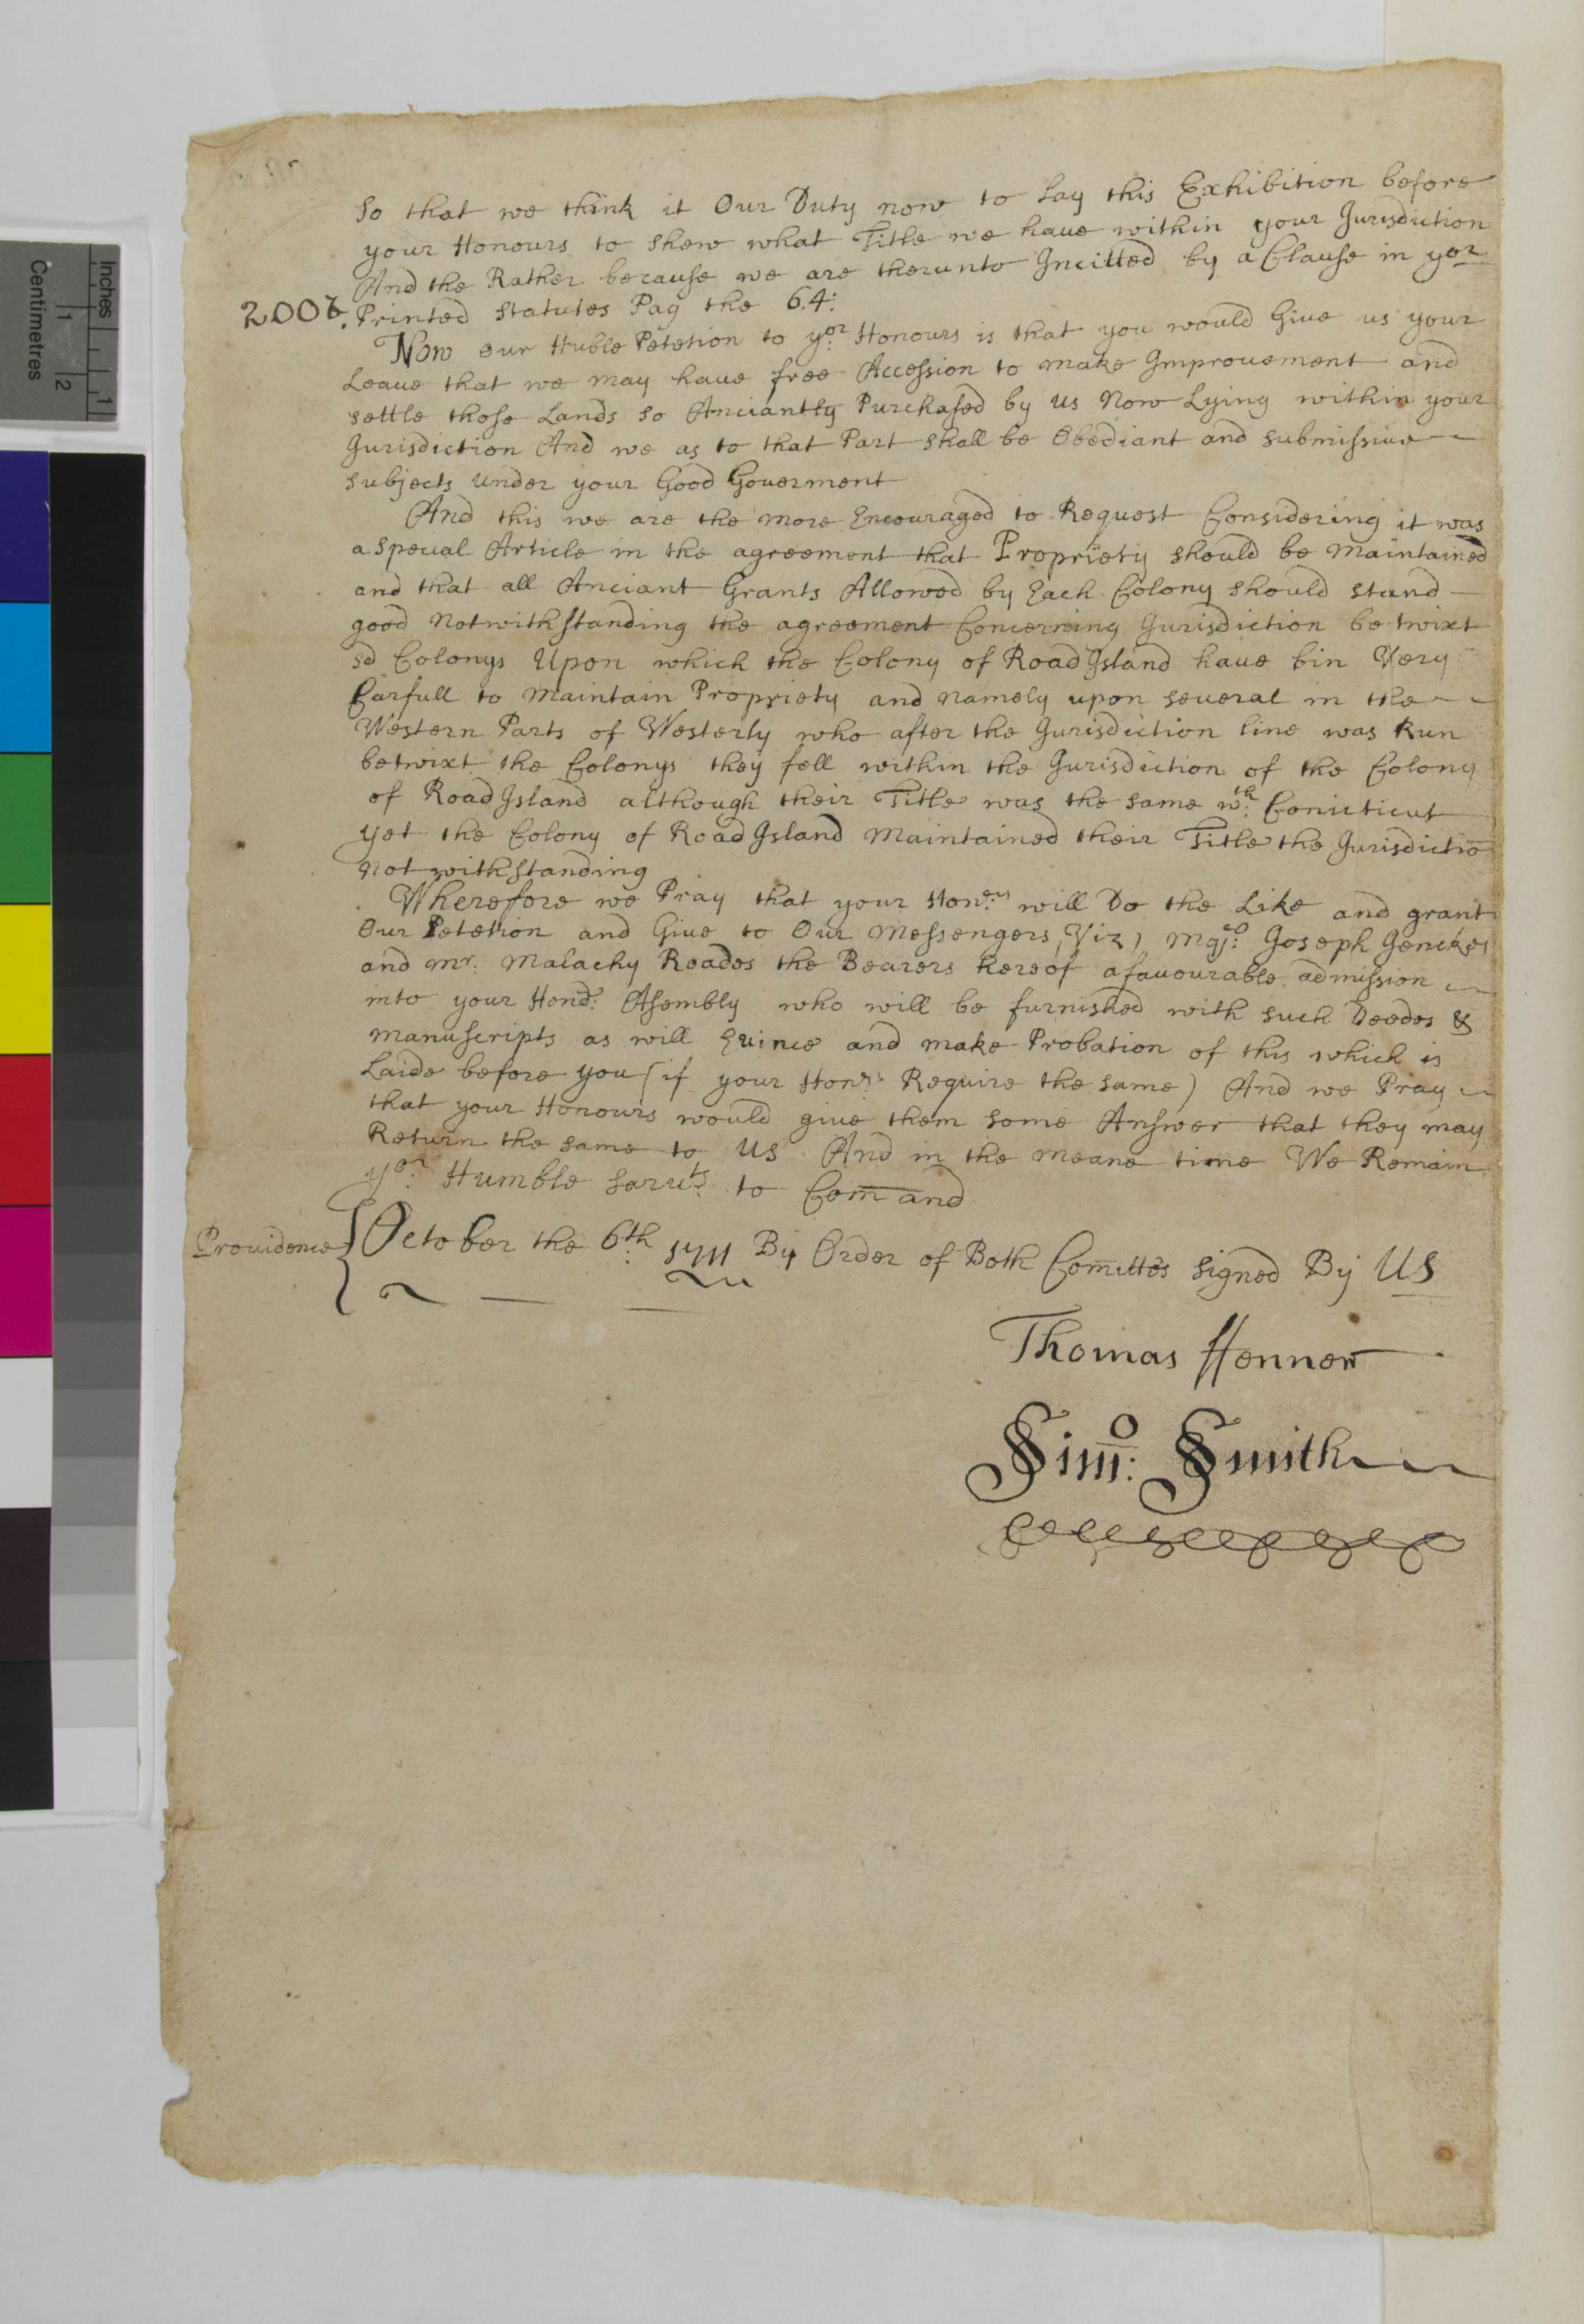 Inches
Centimetres
1
1
2
So that we think it Our Duty now to Lay this Exhibition before
your Honours to shew what Title we have within your Jurisdiction
And the Rather because we are therunto Incitted by a Clause in yor
Printed Statutes Pag the 64:
Now our Huble Petetion to yor: Honours is that you would Give us your
Leave that we may have free Accession to make Improvement and
settle those Lands so Anciantly Purchased by us Now Lying within your
Jurisdiction And we as to that Part shall be Obediant and submissive
subjects under your Good Goverment
And this we are the more Encouraged to Request Considering it was
a Speual Article in the agreement that Propriety should be Maintained
and that all Anciant Grants Allowed by Each Colony should stand
good Notwithstanding the agreement Concerning Jurisdiction betwixt
sd Colonys Upon which the Colony of Road Island have bin Very
Carfull to Maintain Propriety and namely upon several in the
Western Parts of Westerly who after the Jurisdiction line was Run
betwixt the Colonys they fell within the Jurisdiction of the Colony
of Road Island although their Title was the same wth: Conicticut
yet the Colony of Road Island Maintained their Title the Jurisdictiō
Notwithstanding
Wherefore we Pray that your Honers: will Do the Like and grant
Our Petetion and Give to Our Messengers, (Viz) Majo: Joseph Jenckes
and Mr. Malachy Roades the Bearers hereof a favourable admission
into your Hond: Asembly who will be furnished with such Deedes &
Manuscripts as will Evince and make Probation of this which is
Laide before you (if your Honrs: Require the same) And we Pray
that your Honours would give them some Answer that they may
Return the same to us And in the meane time We Remain
yor: Humble Sarvts: to Com̄and
Providence { October the 6th: 1711 By Order of Both Com̄ittēs signed By US
Thomas ffenner
Simo: Smith